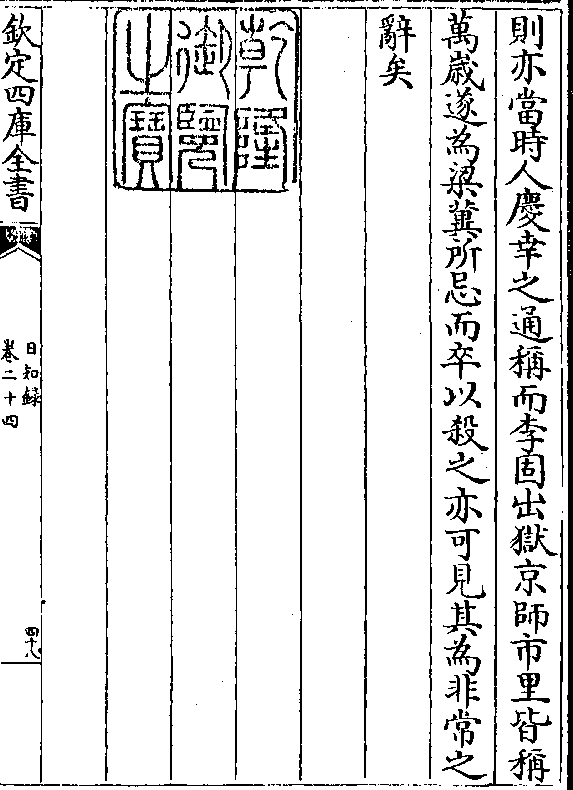 則亦當時人慶幸之通稱而李固出獄京師市里皆稱
萬歳遂為梁冀所忌而卒以殺之亦可見其為非常之
辭矣
乾隆
御覽
之寶
欽定四庫全書
日知録
卷二十四
四十八